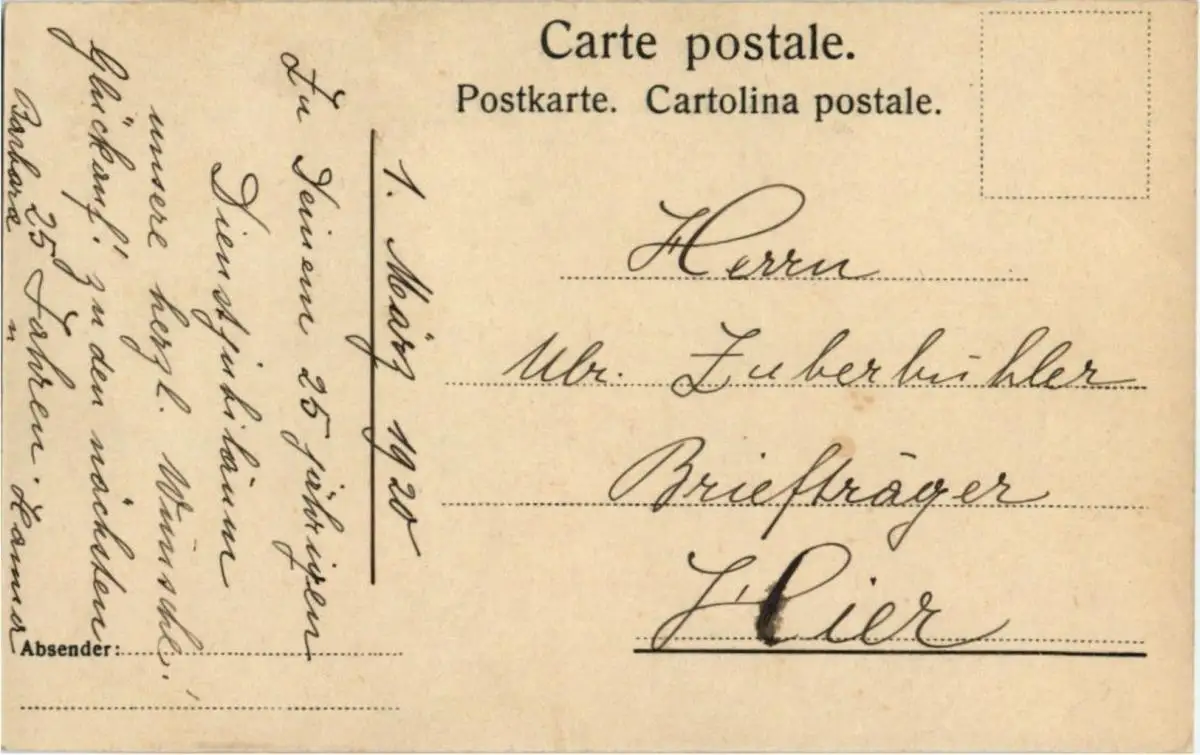 Carte postale.
Postkarte. Cartolina postale.
1. März 1920
Zu Deinem 25 jährigen
Dienstjubiläum
unsere herzl. Wünsche!
Glückauf! zu den nächsten
25 Jahren.
Barbara u Hanna
Herrn
Ubr. Zuberbühler
Briefträger
Hier
Absender: